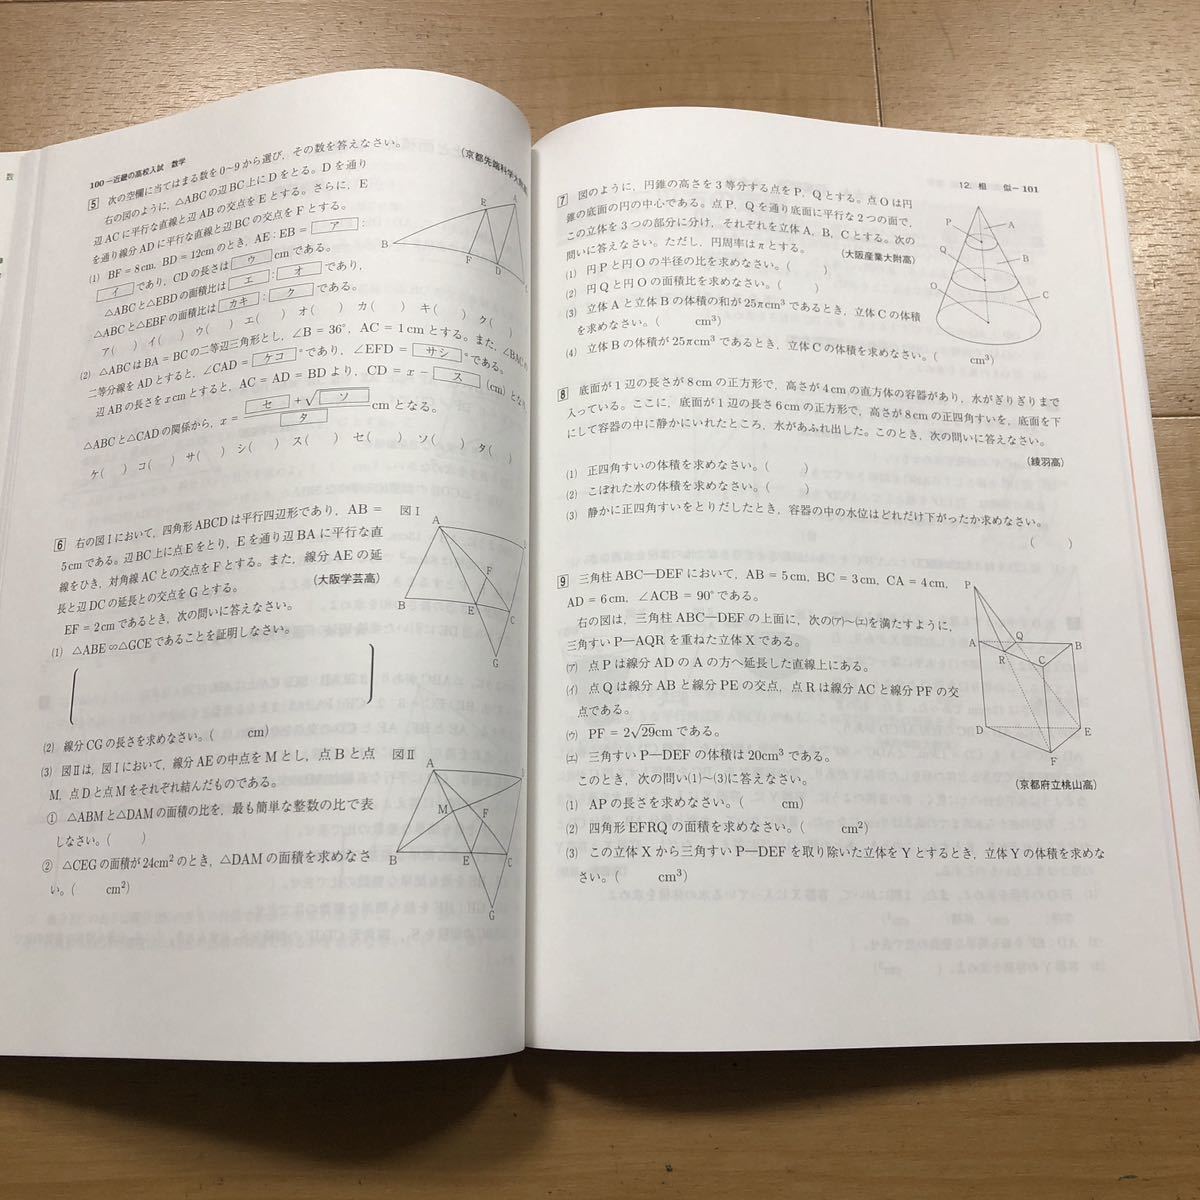 100－近畿の高校入試 数学
5 次の空欄に当てはまる数を0～9から選び，その数を答えなさい。 (京都先端科学大附高)
右の図のように，△ABCの辺BC上にDをとる。Dを通り
辺ACに平行な直線と辺ABの交点をEとする。さらに，E
を通り線分ADに平行な直線と辺BCの交点をFとする。
(1) BF＝8cm，BD＝12cmのとき，AE：EB＝ ア ：
イ であり，CDの長さは ウ cmである。
△ABCと△EBDの面積比は エ ： オ であり，
△ABCと△EBFの面積比は カキ ： ク である。
ア( ) イ( ) ウ( ) エ( ) オ( ) カ( ) キ( ) ク( )
(2) △ABCはBA＝BCの二等辺三角形とし，∠B＝36°，AC＝1cmとする。また，∠BACの
二等分線をADとすると，∠CAD＝ ケコ °であり，∠EFD＝ サシ °である。
辺ABの長さをxcmとすると，AC＝AD＝BDより，CD＝x－ ス (cm)となり
△ABCと△CADの関係から，x＝ セ ＋√ソ / タ cmとなる。
ケ( ) コ( ) サ( ) シ( ) ス( ) セ( ) ソ( ) タ( )
A
E
B
F
D
C
6 右の図Ⅰにおいて，四角形ABCDは平行四辺形であり，AB＝
5cmである。辺BC上に点Eをとり，Eを通り辺BAに平行な直
線をひき，対角線ACとの交点をFとする。また，線分AEの延
長と辺DCの延長との交点をGとする。 (大阪学芸高)
EF＝2cmであるとき，次の問いに答えなさい。
(1) △ABE∽△GCEであることを証明しなさい。
図Ⅰ
A
F
B
E
C
G
(2) 線分CGの長さを求めなさい。( cm)
(3) 図Ⅱは，図Ⅰにおいて，線分AEの中点をMとし，点Bと点
M，点Dと点Mをそれぞれ結んだものである。
① △ABMと△DAMの面積の比を，最も簡単な整数の比で表
しなさい。( )
② △CEGの面積が24cm²のとき，△DAMの面積を求めなさ
い。( cm²)
図Ⅱ
A
M
F
B
E
C
G
12．相 似－101
7 図のように，円錐の高さを3等分する点をP，Qとする。点Oは円
錐の底面の円の中心である。点P，Qを通り底面に平行な2つの面で，
この立体を3つの部分に分け，それぞれを立体A，B，Cとする。次の
問いに答えなさい。ただし，円周率はπとする。 (大阪産業大附高)
(1) 円Pと円Oの半径の比を求めなさい。( )
(2) 円Qと円Oの面積比を求めなさい。( )
(3) 立体Aと立体Bの体積の和が25πcm³であるとき，立体Cの体積
を求めなさい。( cm³)
(4) 立体Bの体積が25πcm³であるとき，立体Cの体積を求めなさい。( cm³)
P
A
Q
B
O
C
8 底面が1辺の長さが8cmの正方形で，高さが4cmの直方体の容器があり，水がぎりぎりまで
入っている。ここに，底面が1辺の長さ6cmの正方形で，高さが8cmの正四角すいを，底面を下
にして容器の中に静かにいれたところ，水があふれ出した。このとき，次の問いに答えなさい。
(綾羽高)
(1) 正四角すいの体積を求めなさい。( )
(2) こぼれた水の体積を求めなさい。( )
(3) 静かに正四角すいをとりだしたとき，容器の中の水位はどれだけ下がったか求めなさい。
( )
9 三角柱ABC―DEFにおいて，AB＝5cm，BC＝3cm，CA＝4cm，
AD＝6cm，∠ACB＝90°である。
右の図は，三角柱ABC―DEFの上面に，次の(ア)～(エ)を満たすように，
三角すいP―AQRを重ねた立体Xである。
(ア) 点Pは線分ADのAの方へ延長した直線上にある。
(イ) 点Qは線分ABと線分PEの交点，点Rは線分ACと線分PFの交
点である。
(ウ) PF＝2√29cmである。
(エ) 三角すいP―DEFの体積は20cm³である。
このとき，次の問い(1)～(3)に答えなさい。 (京都府立桃山高)
(1) APの長さを求めなさい。( cm)
(2) 四角形EFRQの面積を求めなさい。( cm²)
(3) この立体Xから三角すいP―DEFを取り除いた立体をYとするとき，立体Yの体積を求めな
さい。( cm³)
P
A
Q
B
R
C
D
E
F